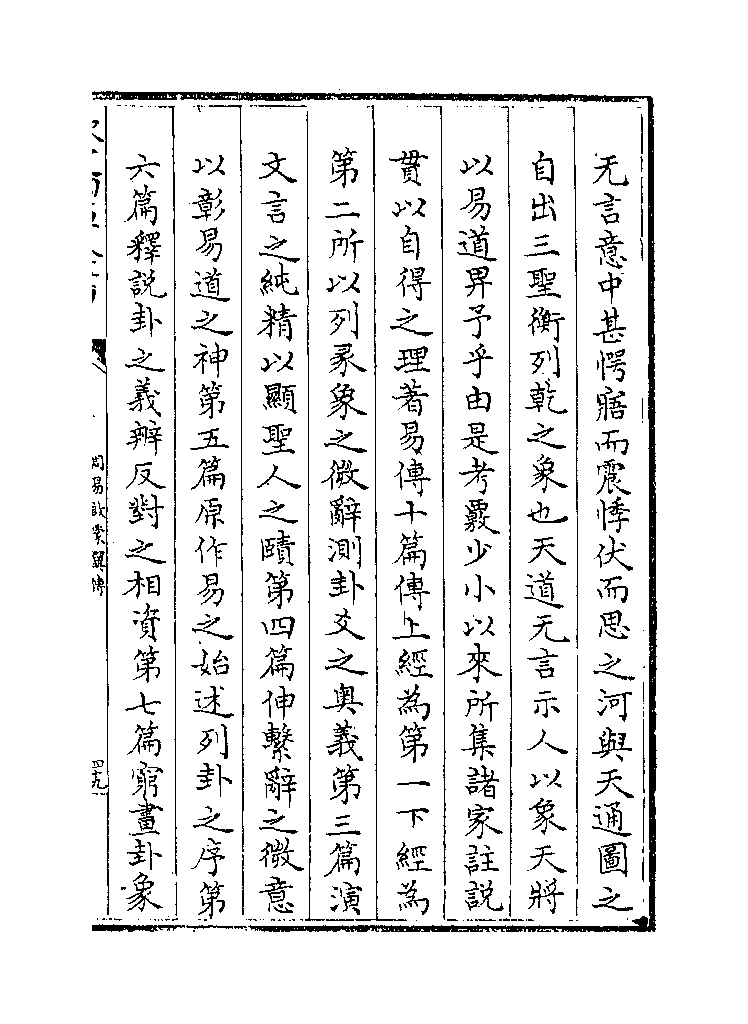 无言意中甚愕寤而震悸伏而思之河與天通圖之
自出三聖衡列乾之象也天道无言示人以象天將
以易道畀予乎由是考覈少小以來所集諸家註說
貫以自得之理著易傳十篇傳上經為第一下經為
第二所以列彖象之微辭測卦爻之奥義第三篇演
文言之純精以顯聖人之賾第四篇伸繫辭之微意
以彰易道之神第五篇原作易之始述列卦之序第
六篇釋說卦之義辨反對之相資第七篇窮畫卦象
周易啟蒙翼傳